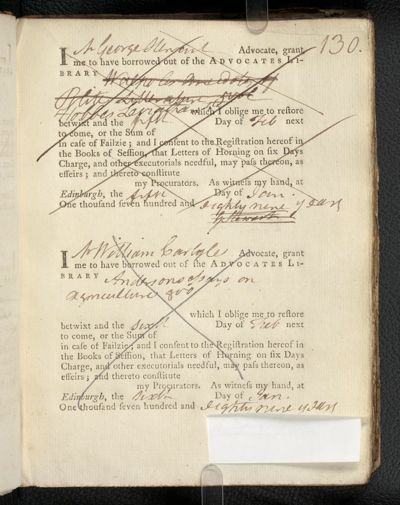 130.
I Mr George Advocate, grant
me to have borrowed out of the ADVOCATES LI-
BRARY
Polite Literature
Hobbes Leviathan which I oblige me to reſtore
betwixt and the fifth Day of Feb next
to come, or the Sum of
in caſe of Failzie; and I conſent to the Regiſtration hereof in
the Books of Seſſion, that Letters of Horning on ſix Days
Charge, and other executorials needful, may paſs thereon, as
effeirs; and thereto conſtitute
my Procurators. As witneſs my hand, at
Edinburgh, the fifth Day of Jan.
One thouſand ſeven hundred and eighty nine years
I Mr William Carlyle Advocate, grant
me to have borrowed out of the ADVOCATES LI-
BRARY Andersons Essays on
Agriculture 8vo
which I oblige me to reſtore
betwixt and the sixth Day of Feb next
to come, or the Sum of
in caſe of Failzie; and I conſent to the Regiſtration hereof in
the Books of Seſſion, that Letters of Horning on ſix Days
Charge, and other executorials needful, may paſs thereon, as
effeirs; and thereto conſtitute
my Procurators. As witneſs my hand, at
Edinburgh, the sixth Day of Jan.
One thouſand ſeven hundred and eighty nine years